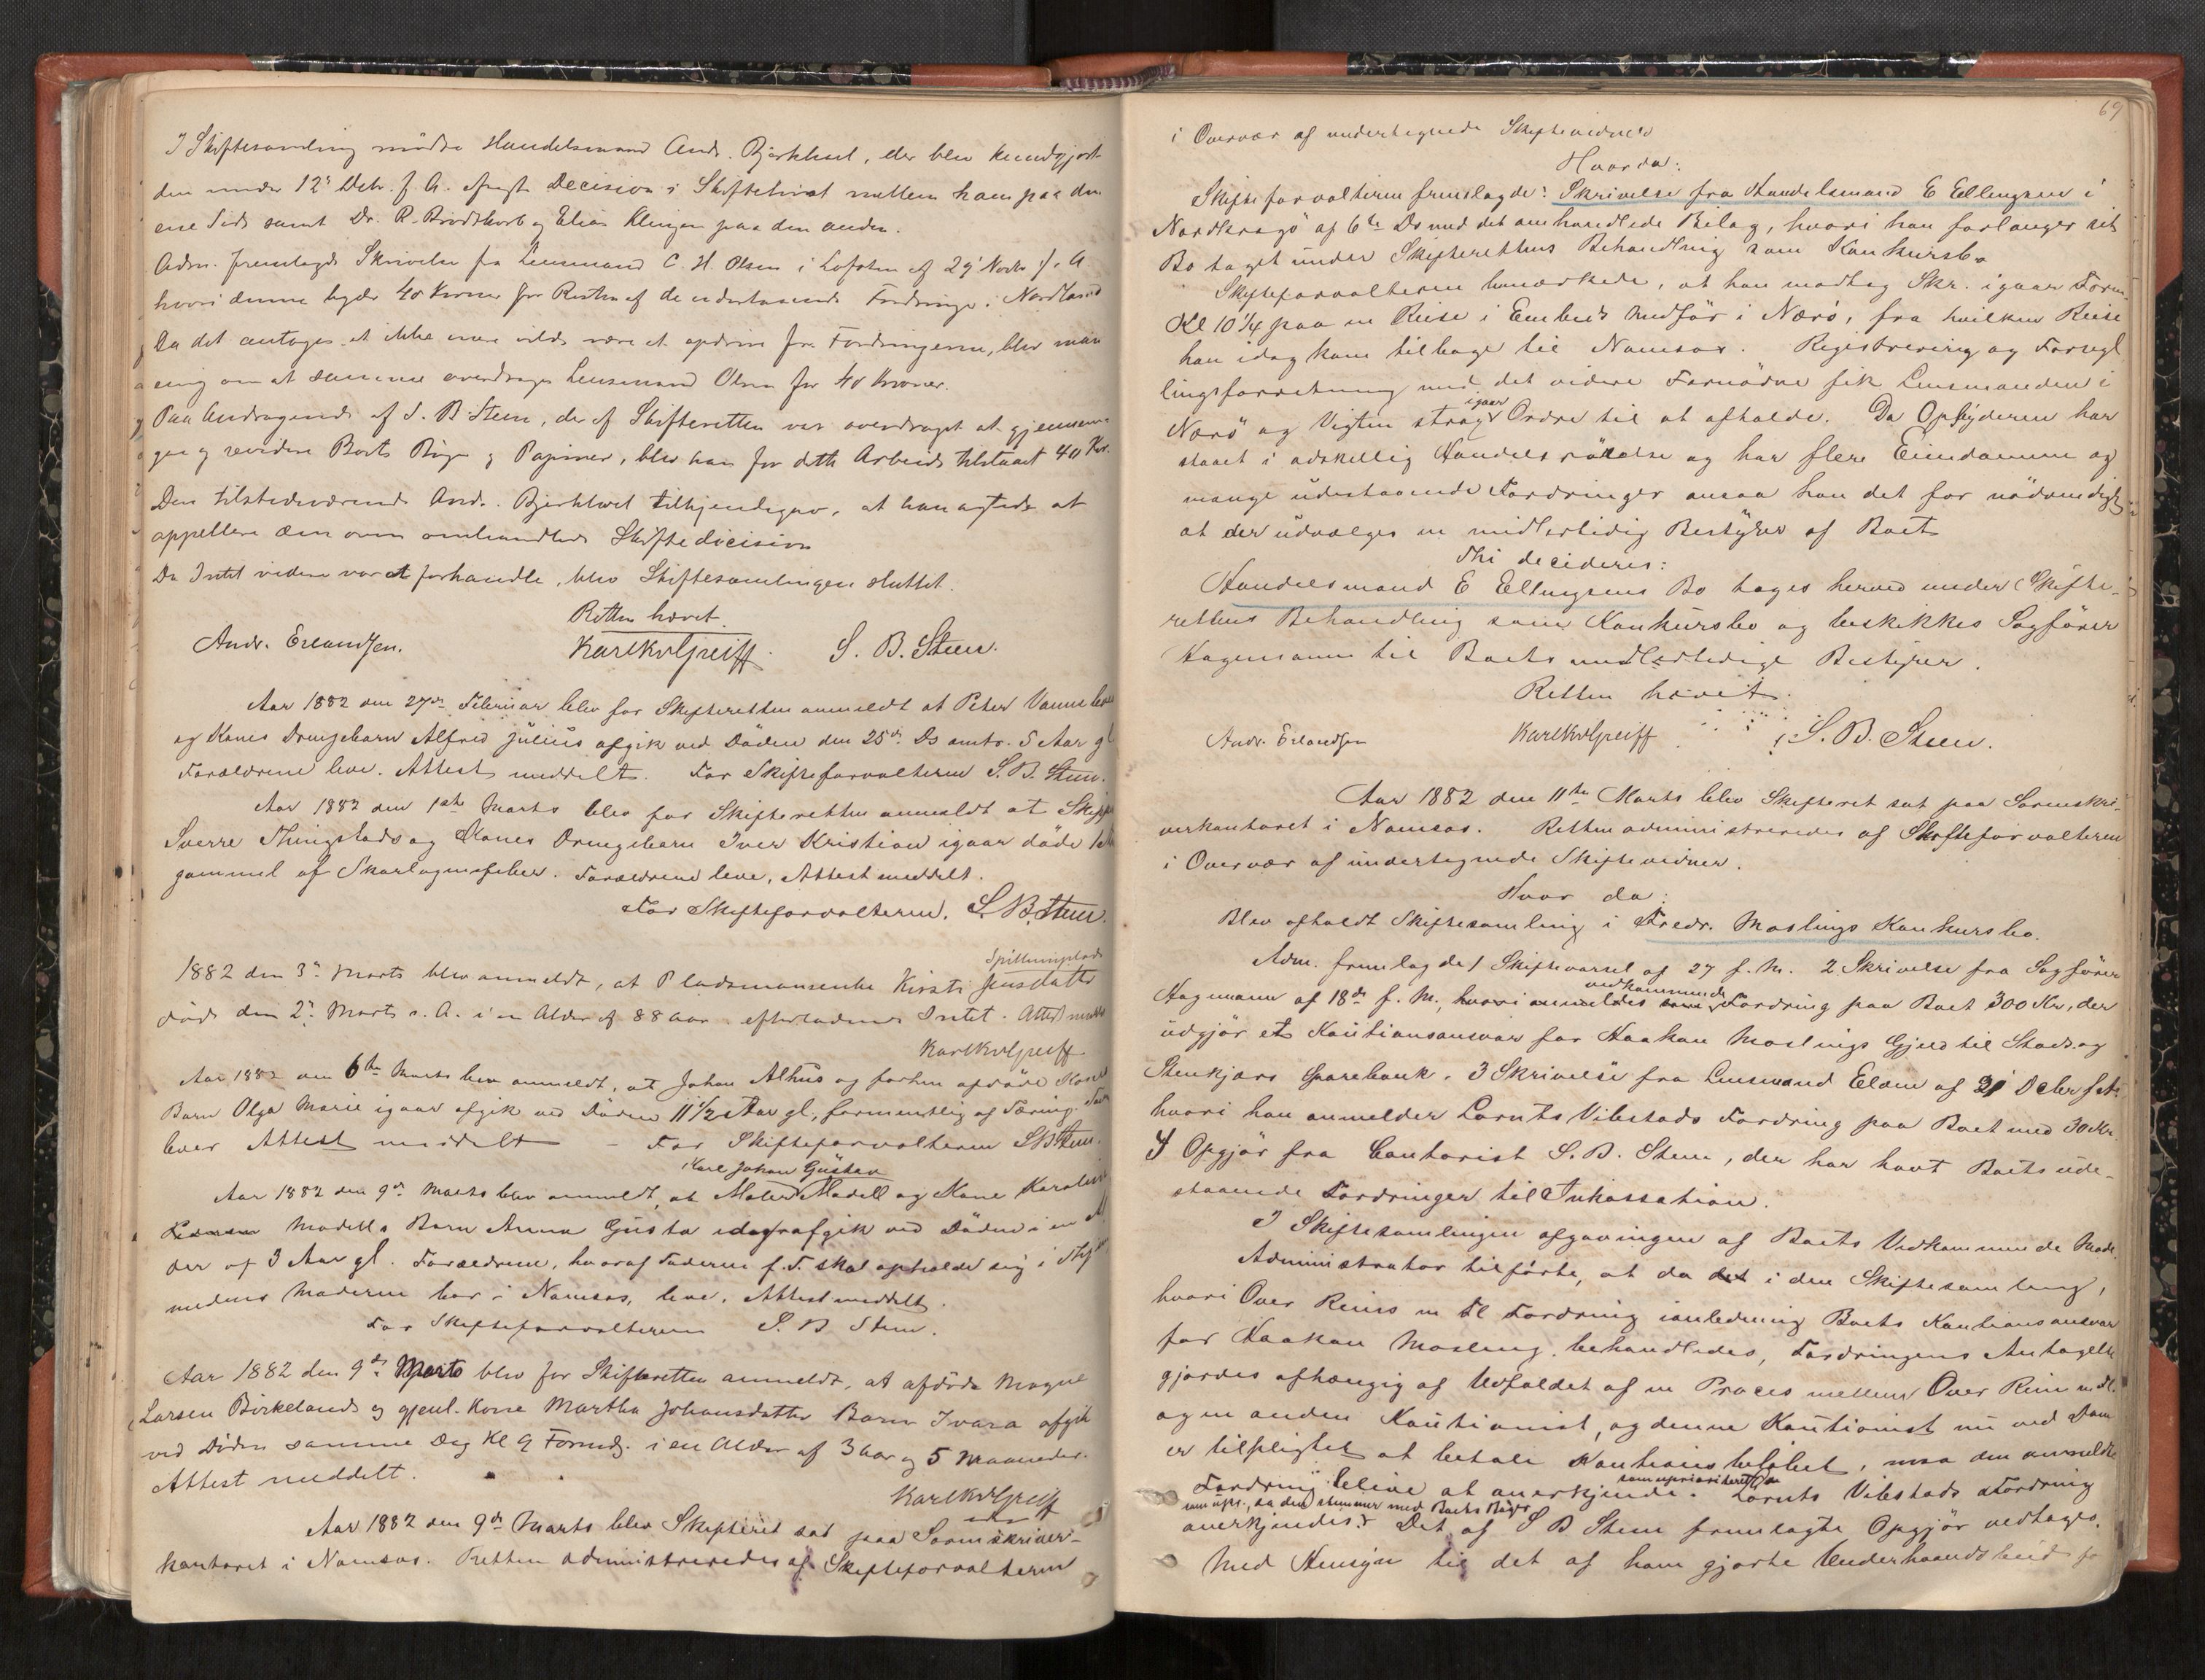 I Skiftesamling mødte Handelsmand Andr. Bjørkhoel, der blev kundgjort
den under 12te Debr. f. A. afsagte Decision i Skiftetvist mellem ham paa den
ene Side samt Dr. R. Brodtkorb og Elias Klingen paa den anden.
Adm. fremlagde Skrivelse fra Lensmand C. H. Olsen i Lofoten af 29' Novbr f. A
hvori denne byder 40 Kroner for Resten af de udestaaende Fordringer i Nordland
Da det antages at ikke mere vilde være at opdrive for Fordringerne, blev man
enig om at samme overdrages Lensmand Olsen for 40 Kroner.
Paa Andragende af S. B. Steen, der af Skifteretten var overdraget at gjennem-
gaa og revidere Boets Bøger og Papirer, blev ham for dette Arbeide tilstaaet 40 Kr.
Den tilstedeværende Andr. Bjørkhoel tilkjendegav, at han agtede at
appellere den oven omhandlede Skiftedecision
Da Intet videre var at forhandle, blev Skiftesamlingen sluttet.
Retten hævet.
Andr. Erlandsen. Karl KvlGreiff. S. B. Steen.
Aar 1882 den 27de Februar blev for Skifteretten anmeldt at Peter
og Kones Drengebarn Alfred Julius afgik ved Døden den 25de Ds omtr. 5 Aar gl
Forældrene leve. Attest meddelt. For Skifteforvalteren S. B. Steen.
Aar 1882 den 1ste Marts blev for Skifteretten anmeldt at
Sverre Thingstads og Kones Drengebarn Iver Kristian igaar døde 1
gammel af Skarlagensfeber. Forældrene leve, Attest meddelt.
For Skifteforvalteren. S. B. Steen.
Spillumplads
1882 den 3' Marts blev anmeldt, at Pladsmansenke Kirsti Jensdatter
døde den 2' Marts s. A. i en Alder af 88 Aar efterladende Intet. Attest meddelt
Karl KvlGreiff
Aar 1882 den 6te Marts blev anmeldt, at Johan Alhus og forhen afdøde Kones
Barn Olga Marie igaar afgik ved Døden 11 1/2 Aar gl., formentlig af Tæring.
lever Attest meddelt – For Skifteforvalteren S B Steen.
Karl Johan Gustav
Aar 1882 den 9de Marts blev anmeldt, at Maler Modell og Kone Karoline
Modells Barn Anna Gusta idag afgik ved Døden i en Al
der af 3 Aar gl. Forældrene, hvoraf Faderen f. T. skal opholde sig i
medens Moderen bor i Namsos, leve. Attest meddelt.
For Skifteforvalteren S. B Steen.
Aar 1882 den 9de Marts blev for Skifteretten anmeldt, at afdøde Magne
Larsen Birkelands og gjenl. Kone Martha Johansdatter Barn Ivara afgik
ved Døden samme Dag Kl 9 Formdg. i en Alder af 3 Aar og 5 Maaneder.
Attest meddelt.
Karl KvlGreiff
Aar 1882 den 9de Marts blev Skifteret sat paa Sorenskriver-
kontoret i Namsos. Retten administreredes af Skifteforvalteren
69
i Overvær af undertegnede Skiftevidner
Hvorda:
Skifteforvalteren fremlagde: Skrivelse fra Handelsmand E Ellingsen i
Nordkragø af 6te Ds med det omhandlede Bilag, hvori han forlanger sit
Bo taget under Skifterettens Behandling som Konkursbo
Skifteforvalteren bemærkede, at han modtog Skr. igaar Form.
Kl 10 1/4 paa en Reise i Embeds Medfør i Nærø, fra hvilken Reise
han idag kom tilbage til Namsos. Registrering og Forsegl
lingsforretning med det videre Fornødne fik Lensmanden i
igaar
Nærø og Vigten strags Ordre til at afholde. Da Opbyderen har
staaet i adskillig Handelsrørelse og har flere Eiendomme og
mange udestaaende Fordringer ansaa han det for nødvendigt
at der udvælges en midlertidig Bestyrer af Boet
Thi decideres:
Handelsmand E Ellingsens Bo tages herved under Skifte-
rettens Behandling som Konkursbo og beskikkes Sagfører
Hagemann til Boets midlertidige Bestyrer.
Retten hævet.
Andr. Erlandsen Karl KvlGreiff S. B. Steen.
Aar 1882 den 11te Marts blev Skifteret sat paa Sorenskri-
verkontoret i Namsos. Retten administreredes af Skifteforvalteren
i Overvær af undertegnede Skiftevidner.
Hvor da:
Blev afholdt Skiftesamling i Fredr. Moslings Konkursbo.
Adm. fremlagde 1 Skiftevarsel af 27 f. M. 2 Skrivelse fra Sagfører
vedkommende
Hagemann af 18de f. M., hvori anmeldes som Fordring paa Boet 300 Kr, der
udgjør et Kautionsansvar for Haakon Moslings Gjeld til Stads og
Stenkjærs Sparebank. 3 Skrivelse fra Lensmand Elden af 31 Debr f. A.
hvori han anmelder Lornts Vibstads Fordring paa Boet med 30 Kr.
4 Opgjør fra Contorist S. B. Steen, der har havt Boets ude-
staaende Fordringer til Inkassation.
I Skiftesamlingen afgav ingen af Boets Vedkommende Møde.
Administrator tilførte, at da det i den Skiftesamling,
hvori Over Reins m Fl Fordring i anledning Boets Kautionsansvar
for Haakon Mosling behandledes, Fordringens Antagelse
gjordes afhængig af Udfaldet af en Proces mellem Over Rein m Fl.
og en anden Kautionist, og denne Kautionist nu ved Dom
er tilpligtet at betale Kautionsbeløbet, maa den anmeldte
som uprioriteret
Fordring blive at anerkjende. Lornts Vibstads Fordring
som upr., da den stemmer med Boets Bøger
anerkjendes. Det af S B Steen fremlagte Opgjør vedtages.
Med Hensyn til det af ham gjorte Underhaandsbud fo